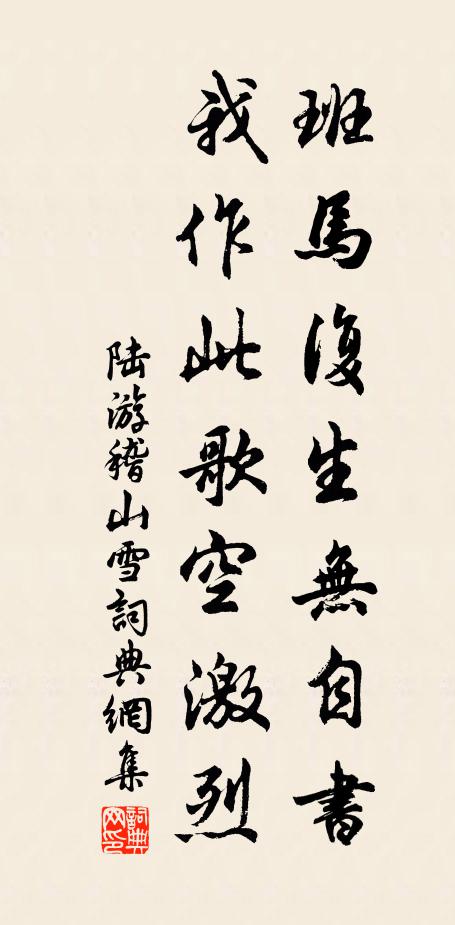 班馬復生無自書
我作此歌空激烈
陆游稽山雪詞典網集
詞典網印